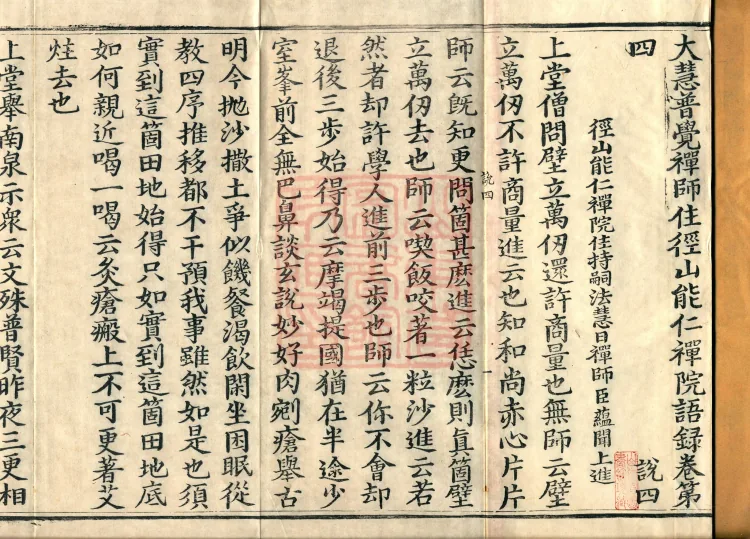 大慧普覺禪師住徑山能仁禪院語錄卷第
四 說四
徑山能仁禪院住持嗣法慧日禪師臣蘊聞上進
上堂僧問壁立萬仞還許商量也無師云壁
立萬仞不許商量進云也知和尚赤心片片
說四
師云旣知更問箇甚麽進云恁麽則真箇壁
立萬仞去也師云喫飯咬著一粒沙進云若
然者却許學人進前三步也師云你不會却
退後三步始得乃云摩竭提國猶在半途少
室峯前全無巴鼻談玄說妙好肉剜瘡舉古
明今抛沙撒土爭似饑餐渴飲閑坐困眠從
教四序推移都不干預我事雖然如是也須
實到這箇田地始得只如實到這箇田地底
如何親近喝一喝云灸瘡瘢上不可更著艾
炷去也
上堂舉南泉示衆云文殊普賢昨夜三更相